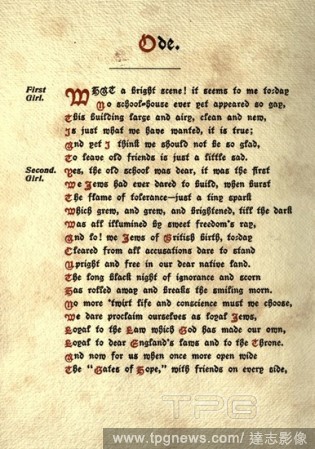 Ode.
First
Girl.
WHAT a bright scene! it seems to me to:day
No school-house ever yet appeared so gay,
This building large and airy, clean and new,
Is just what we have wanted, it is true;
And yet I think we should not be so glad,
To leave old friends is just a little sad.
Second.
Girl.
Yes, the old school was dear, it was the first
We Jews had ever dared to build, when burst
The flame of tolerance—just a tiny spark
Which grew, and grew, and brightened, till the dark
Was all illumined by sweet freedom's ray,
And lo! we Jews of British birth, to:day
Cleared from all accusations dare to stand
Upright and free in our dear native land.
The long black night of ignorance and scorn
Has rolled away and breaks the smiling morn.
No more 'twixt life and conscience must we choose,
We dare proclaim ourselves as loyal Jews,
Loyal to the Law which God has made our own,
Loyal to dear England's laws and to the Throne.
And now for us when once more open wide
The "Gates of Hope," with friends on every side,
TPG
www.tpgnews.com/達志影像